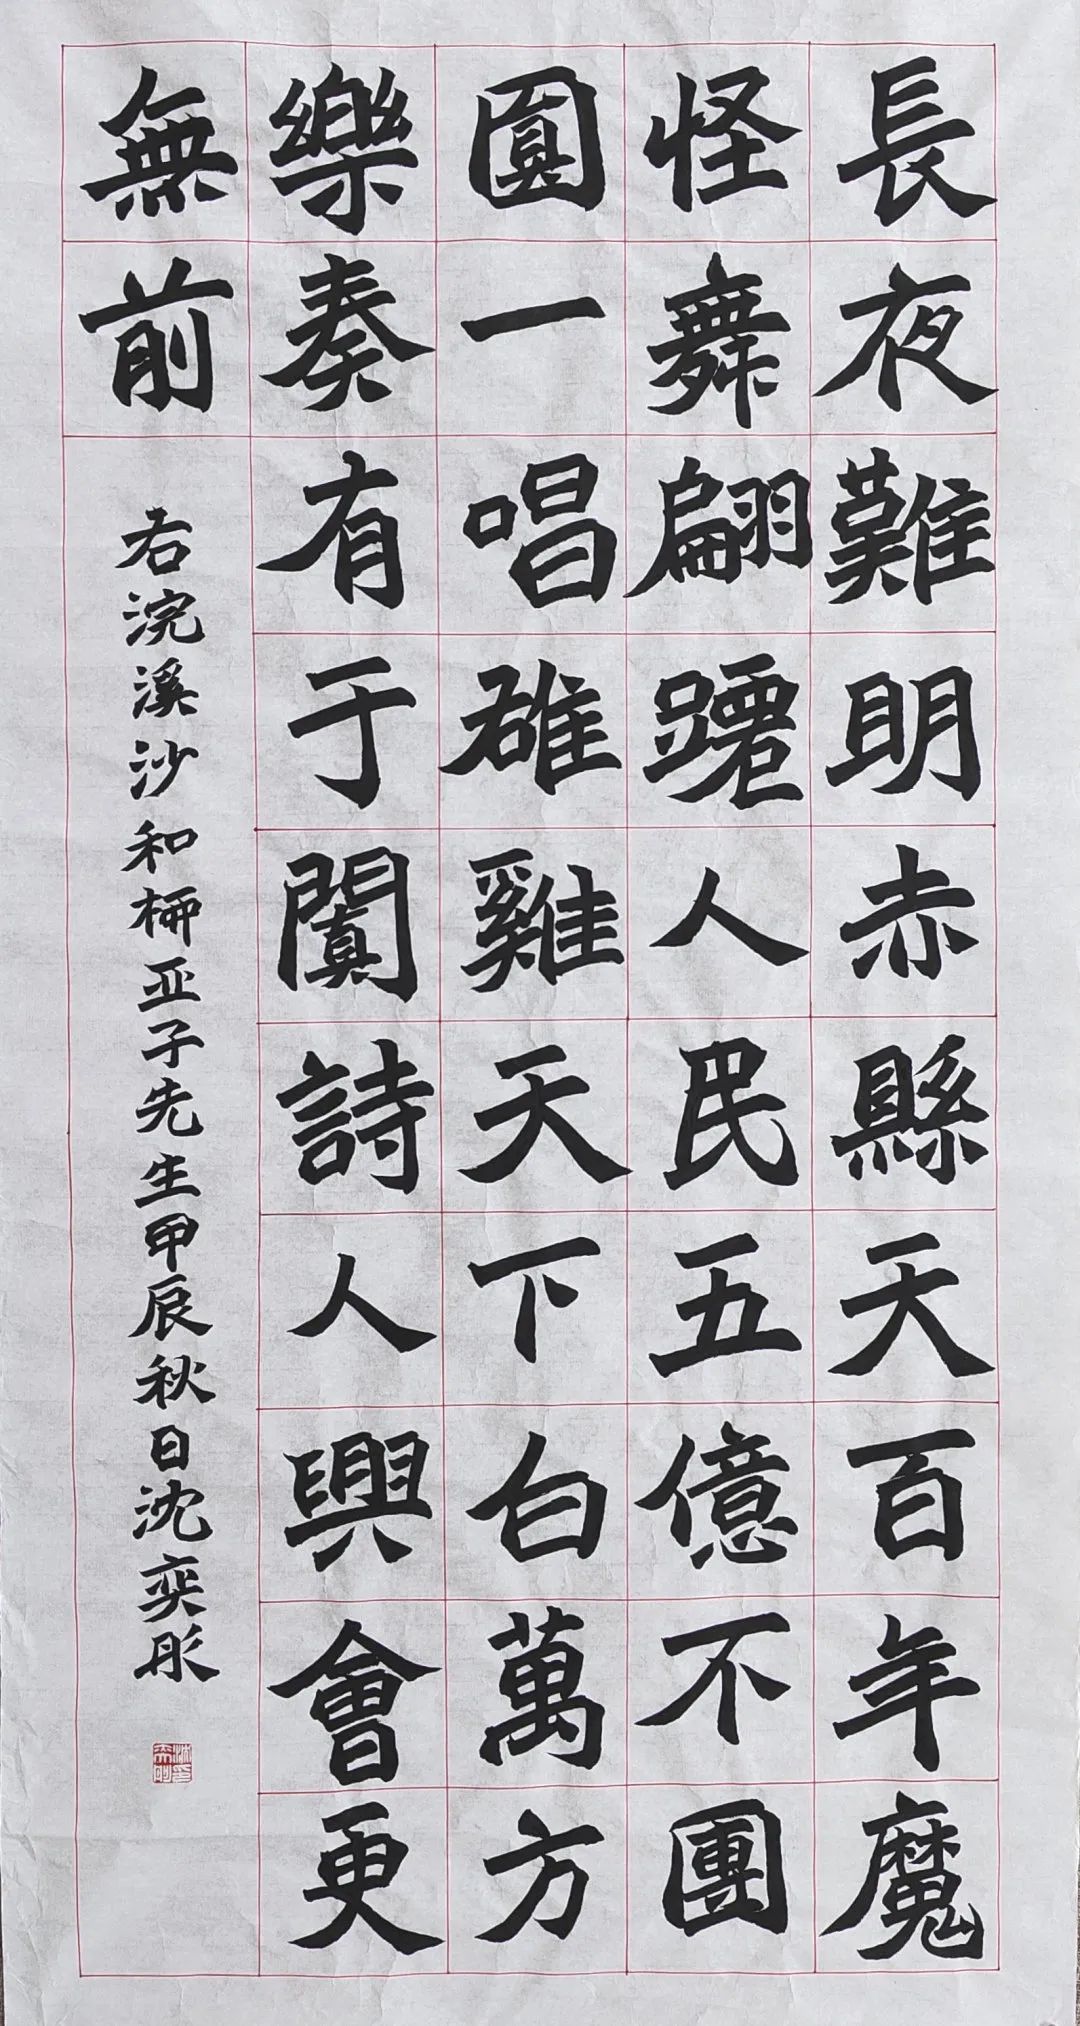 長夜難明赤縣天百年魔
怪舞翩躚人民五億不團
圓一唱雄雞天下白萬方
樂奏有于闐詩人興會更
無前
右浣溪沙和柳亚子先生甲辰秋日沈奕彤